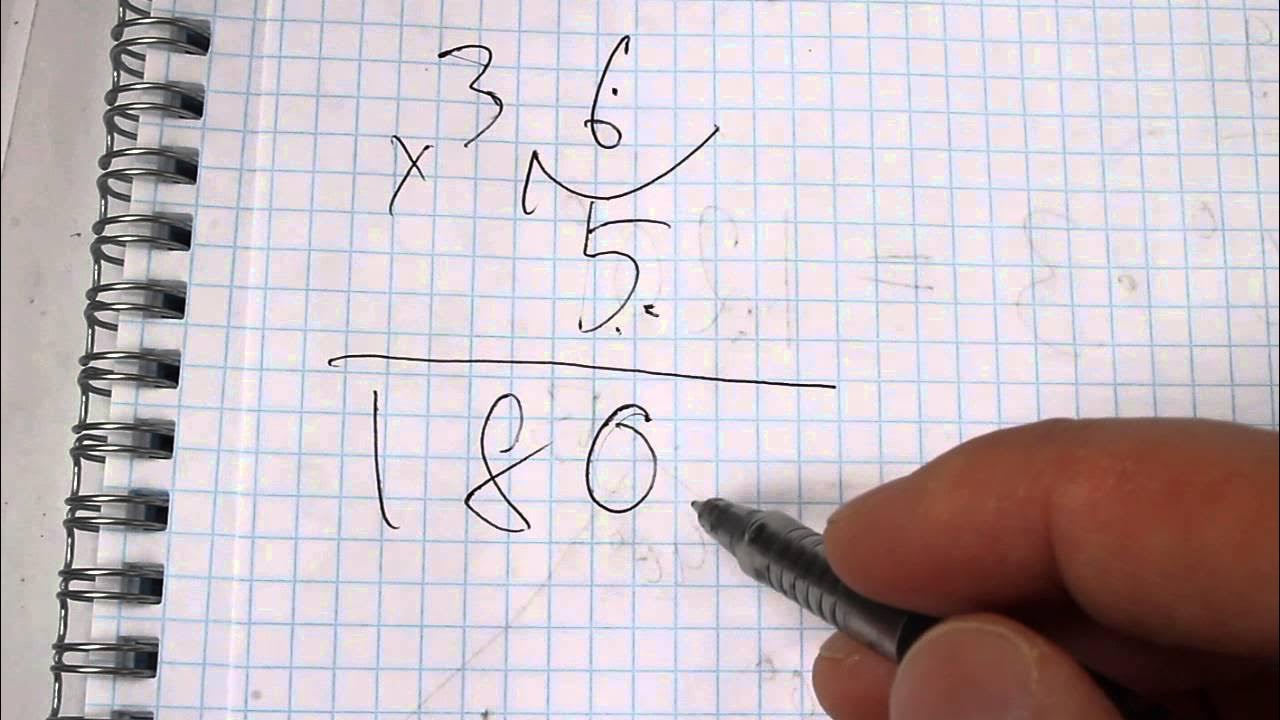 36
×
5.
180